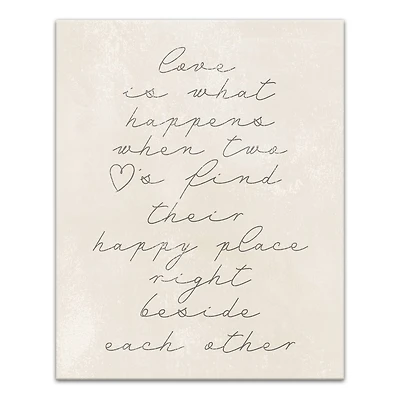 love
is what
happens
when two
♡'s find
their
happy place
right
beside
each other